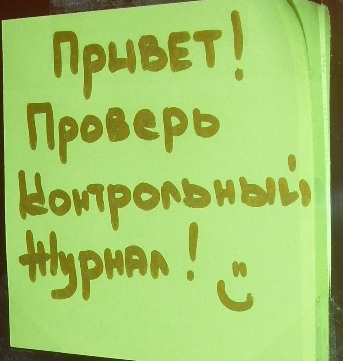 Привет!
Проверь
контрольный
журнал!